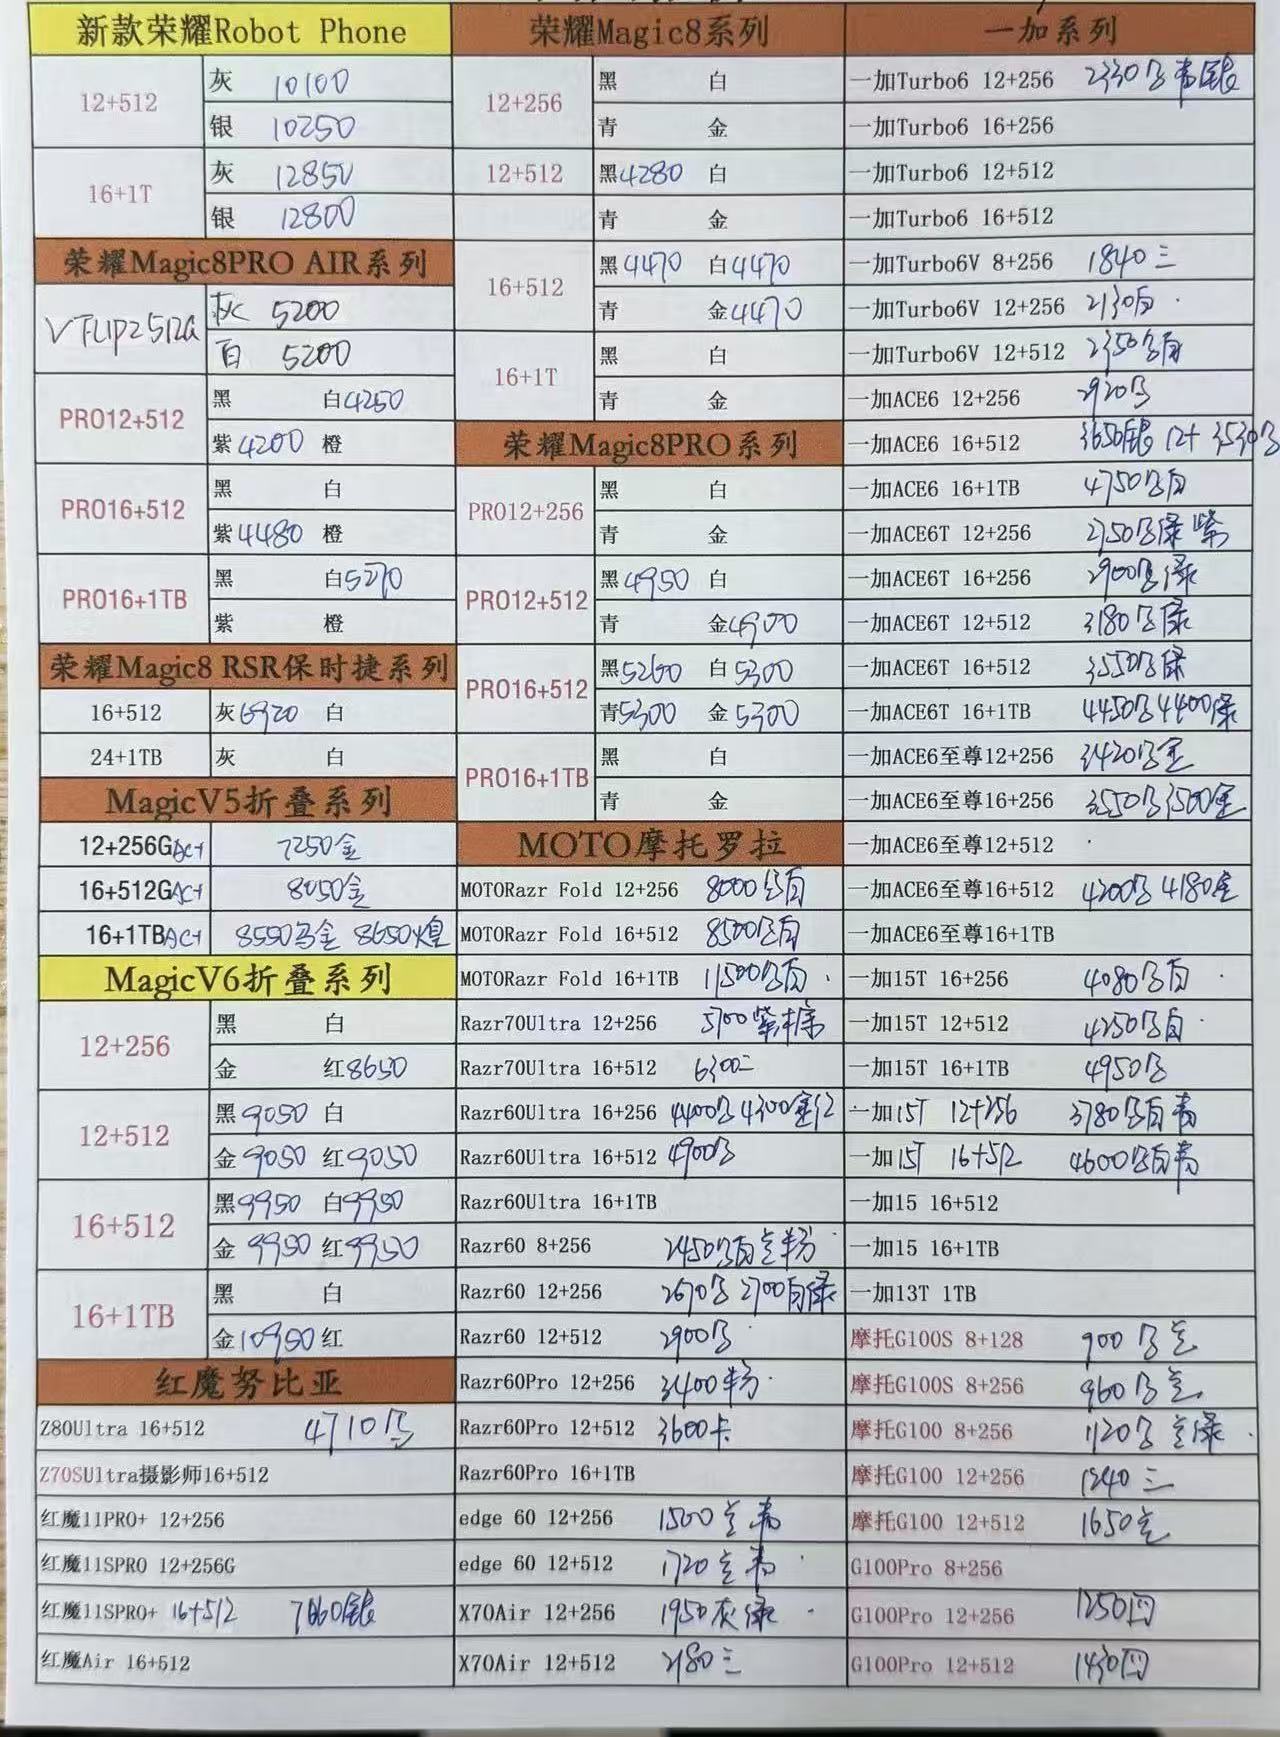 新款荣耀Robot Phone
12+512
灰 10100
银 10250
16+1T
灰 12850
银 12800
荣耀Magic8PRO AIR系列
VFLIP2 512G
灰 5200
白 5200
PRO12+512
黑 白4250
紫4200 橙
PRO16+512
黑 白
紫4480 橙
PRO16+1TB
黑 白5270
紫 橙
荣耀Magic8 RSR保时捷系列
16+512 灰6920 白
24+1TB 灰 白
MagicV5折叠系列
12+256GAC+ 7250金
16+512GAC+ 8050金
16+1TBAC+ 8550 金 8650
MagicV6折叠系列
12+256
黑 白
金 红8650
12+512
黑9050 白
金9050 红9050
16+512
黑9950 白9950
金9950 红9950
16+1TB
黑 白
金10950红
红魔努比亚
Z80Ultra 16+512 4710
Z70SUltra摄影师16+512
红魔11PRO+ 12+256
红魔11SPRO 12+256G
红魔11SPRO+ 16+512 7660银
红魔Air 16+512
荣耀Magic8系列
12+256
黑 白
青 金
12+512
黑4280 白
青 金
16+512
黑4470 白4470
青 金4470
16+1T
黑 白
青 金
荣耀Magic8PRO系列
PRO12+256
黑 白
青 金
PRO12+512
黑4950 白
青 金4900
PRO16+512
黑5260 白5300
青5300 金5300
PRO16+1TB
黑 白
青 金
MOTO摩托罗拉
MOTORazr Fold 12+256 8000 白
MOTORazr Fold 16+512 8500 白
MOTORazr Fold 16+1TB 11500 白
Razr70Ultra 12+256 5700紫棕
Razr70Ultra 16+512 6300二
Razr60Ultra 16+256 4400 4300 红
Razr60Ultra 16+512 4900
Razr60Ultra 16+1TB
Razr60 8+256 2450 白 粉
Razr60 12+256 2670 2700白绿
Razr60 12+512 2900
Razr60Pro 12+256 3400粉
Razr60Pro 12+512 3600卡
Razr60Pro 16+1TB
edge 60 12+256 1500 青
edge 60 12+512 1720 青
X70Air 12+256 1950灰绿
X70Air 12+512 2180三
一加系列
一加Turbo6 12+256 2330 青银
一加Turbo6 16+256
一加Turbo6 12+512
一加Turbo6 16+512
一加Turbo6V 8+256 1840三
一加Turbo6V 12+256 2130白
一加Turbo6V 12+512 2350 白
一加ACE6 12+256 2920
一加ACE6 16+512 3650银 12+ 3530
一加ACE6 16+1TB 4750 白
一加ACE6T 12+256 2750 绿 紫
一加ACE6T 16+256 2900 绿
一加ACE6T 12+512 3180 绿
一加ACE6T 16+512 3550 绿
一加ACE6T 16+1TB 4450 4400绿
一加ACE6至尊12+256 3420 金
一加ACE6至尊16+256 3550 3500金
一加ACE6至尊12+512
一加ACE6至尊16+512 4200 4180金
一加ACE6至尊16+1TB
一加15T 16+256 4080 白
一加15T 12+512 4250 白
一加15T 16+1TB 4950
一加15T 12+256 3780 白青
一加15T 16+512 4600 白青
一加15 16+512
一加15 16+1TB
一加13T 1TB
摩托G100S 8+128 900
摩托G100S 8+256 960
摩托G100 8+256 1120 绿
摩托G100 12+256 1240三
摩托G100 12+512 1650
G100Pro 8+256
G100Pro 12+256 1250四
G100Pro 12+512 1430四